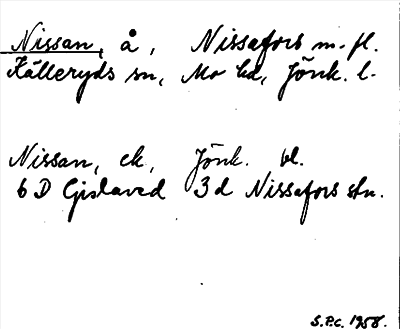 Nissan, å, Nissafors m.fl.
Källeryds sn, Mo hd, Jönk. l.
Nissan, ek, Jönk. bl.
6 D Gislaved 3 d Nissafors stn.
S.P.C. 1958.